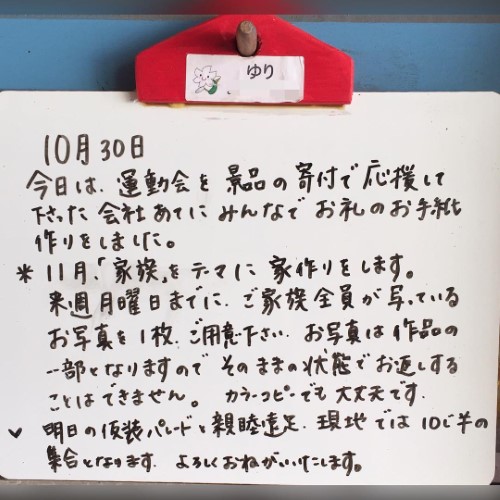 ゆり
10月30日
今日は、運動会を景品の寄付で応援して
下さった会社あてにみんなでお礼のお手紙
作りをしました。
* 11月、「家族」をテーマに家作りをします。
来週月曜日までに、ご家族全員が写っている
お写真を1枚、ご用意下さい。お写真は作品の
一部となりますのでそのままの状態でお返しする
ことはできません。カラーコピーでも大丈夫です。
✓ 明日の仮装パレードと親睦遠足、現地では10じ半の
集合となります。よろしくおねがいいたします。